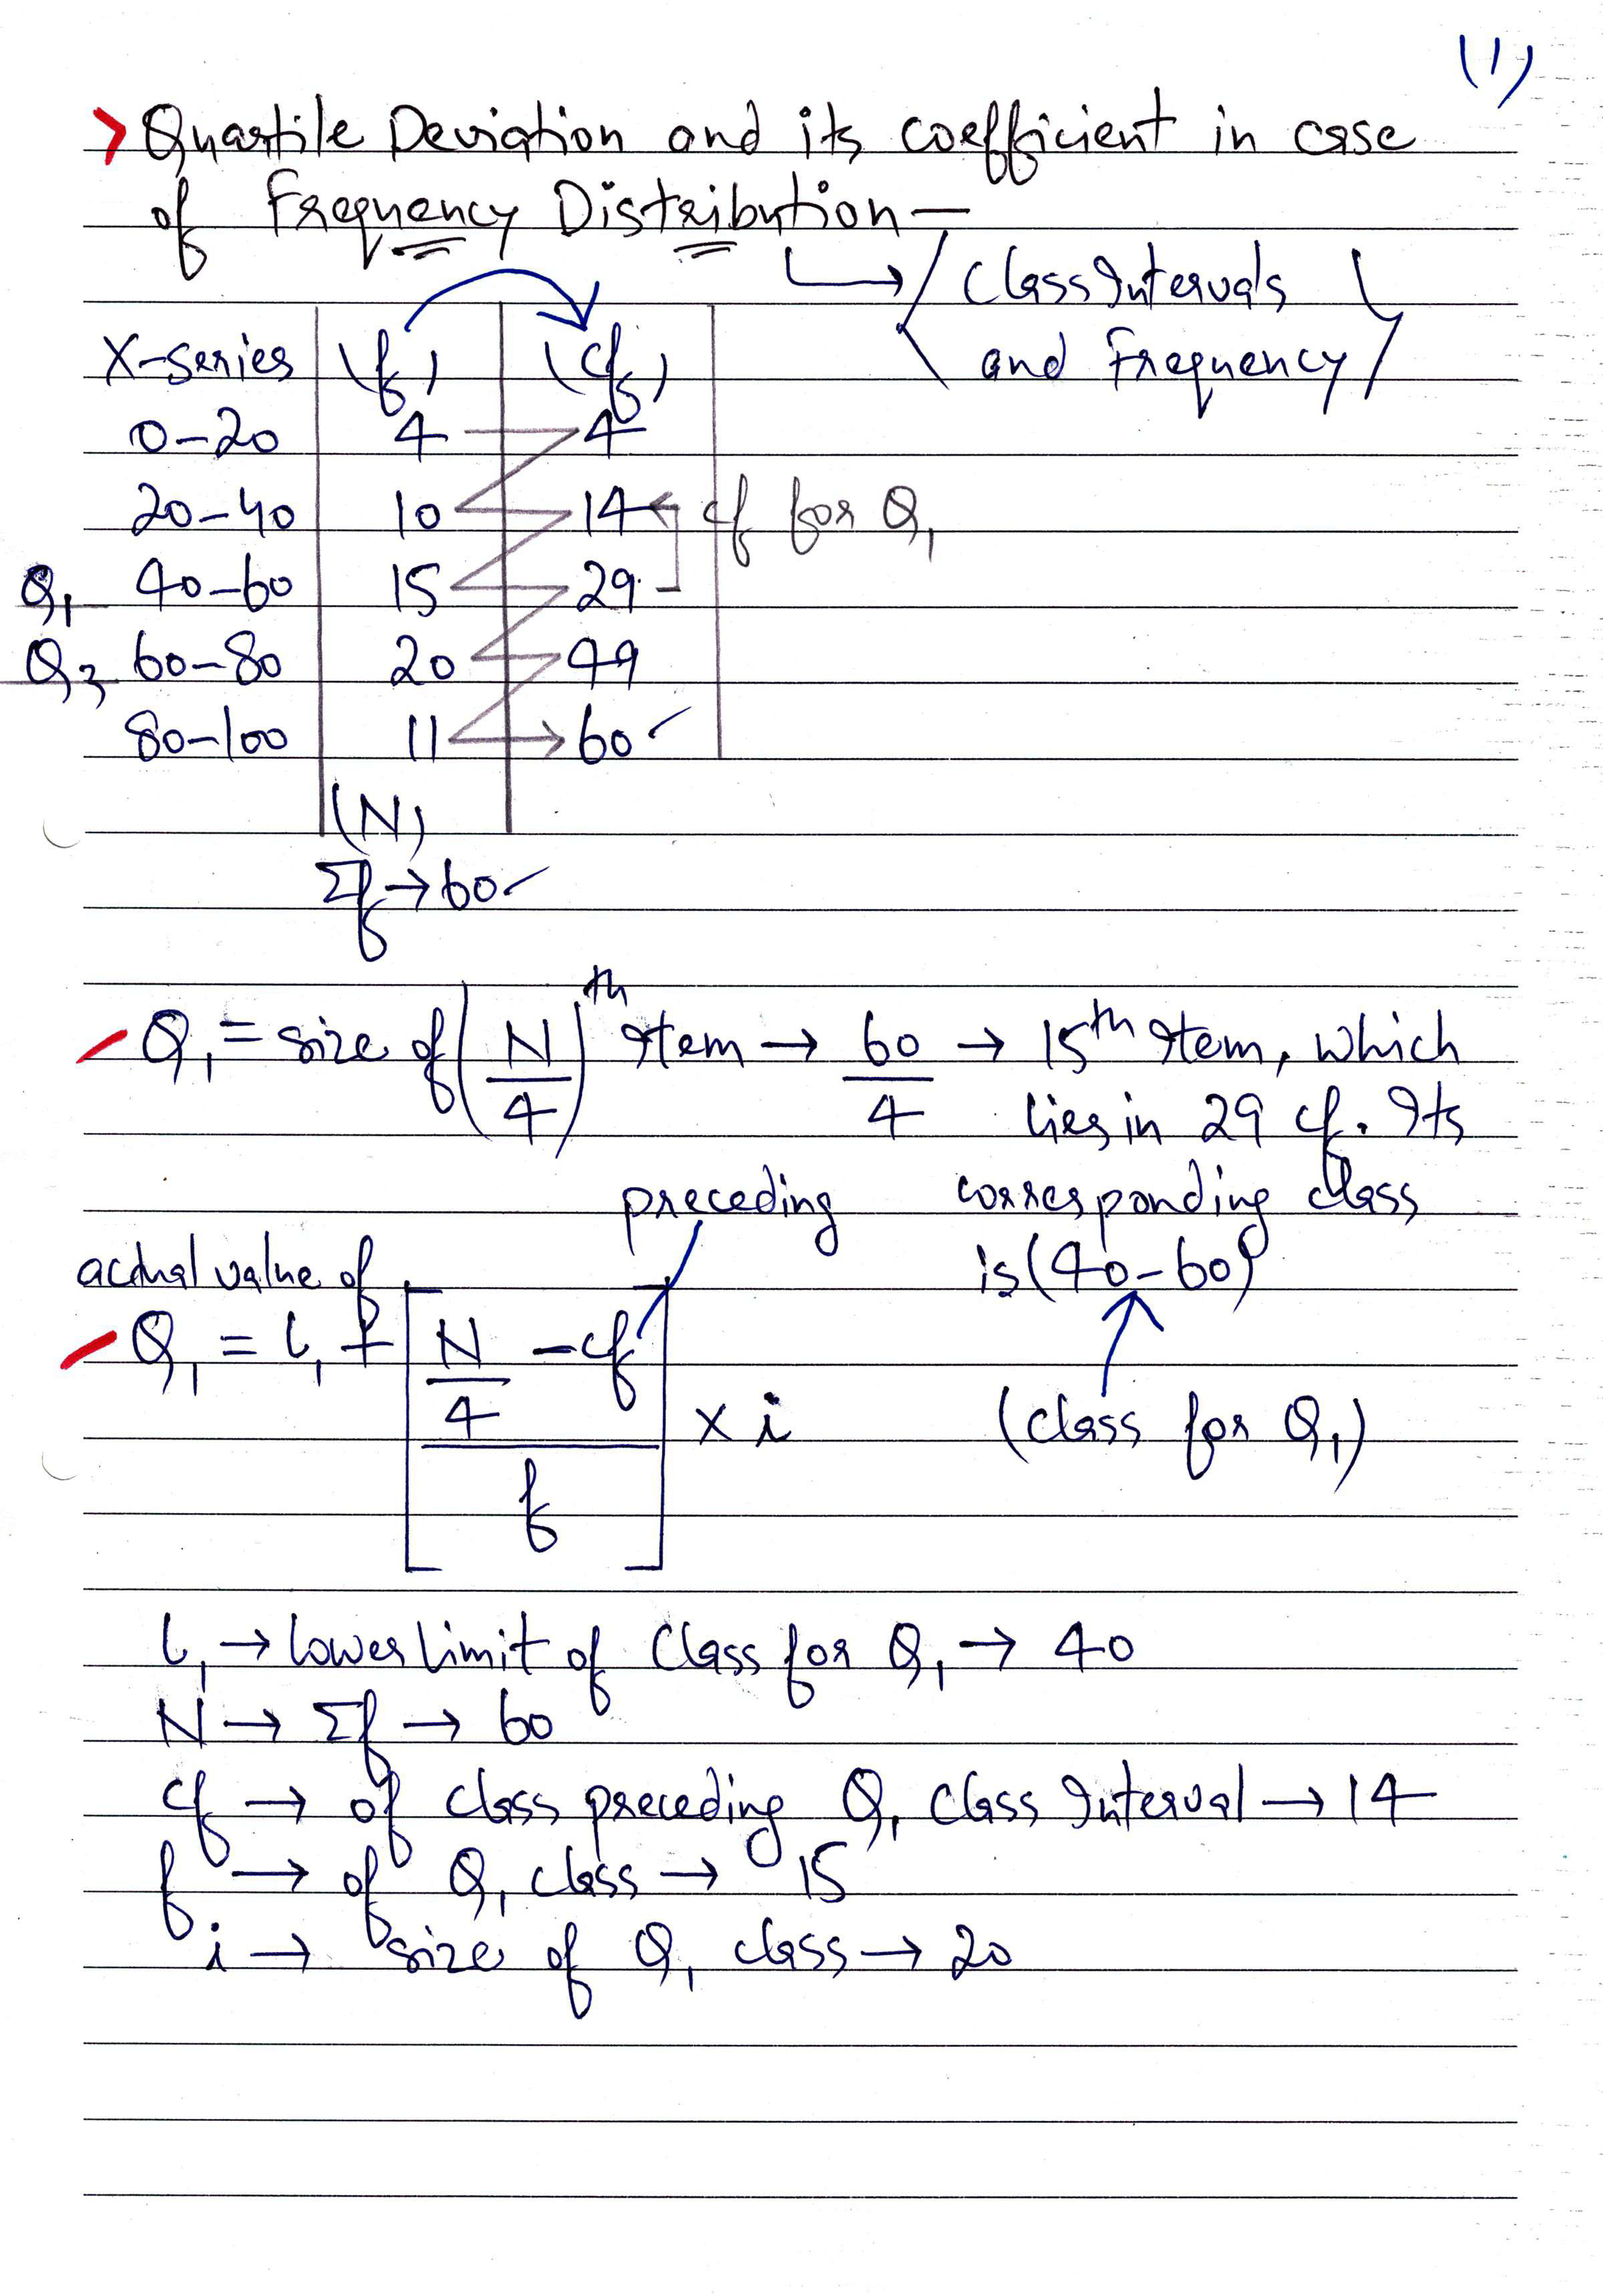 (1)
> Quartile Deviation and its coefficient in case
of Frequency Distribution—
Class Intervals
and Frequency
X-series (f) (cf)
0-20 4 4
20-40 10 14 cf for Q1
Q1 40-60 15 29
Q3 60-80 20 49
80-100 11 60
(N)
Σf → 60
Q1 = size of (N/4)th Item → 60/4 → 15th Item, which
lies in 29 cf. Its
preceding corresponding class
actual value of is (40-60)
Q1 = l1 + [(N/4 - cf)/f] × i
(class for Q1)
l1 → lower limit of Class for Q1 → 40
N → Σf → 60
cf → of class preceding Q1 Class Interval → 14
f → of Q1 class → 15
i → size of Q1 class → 20